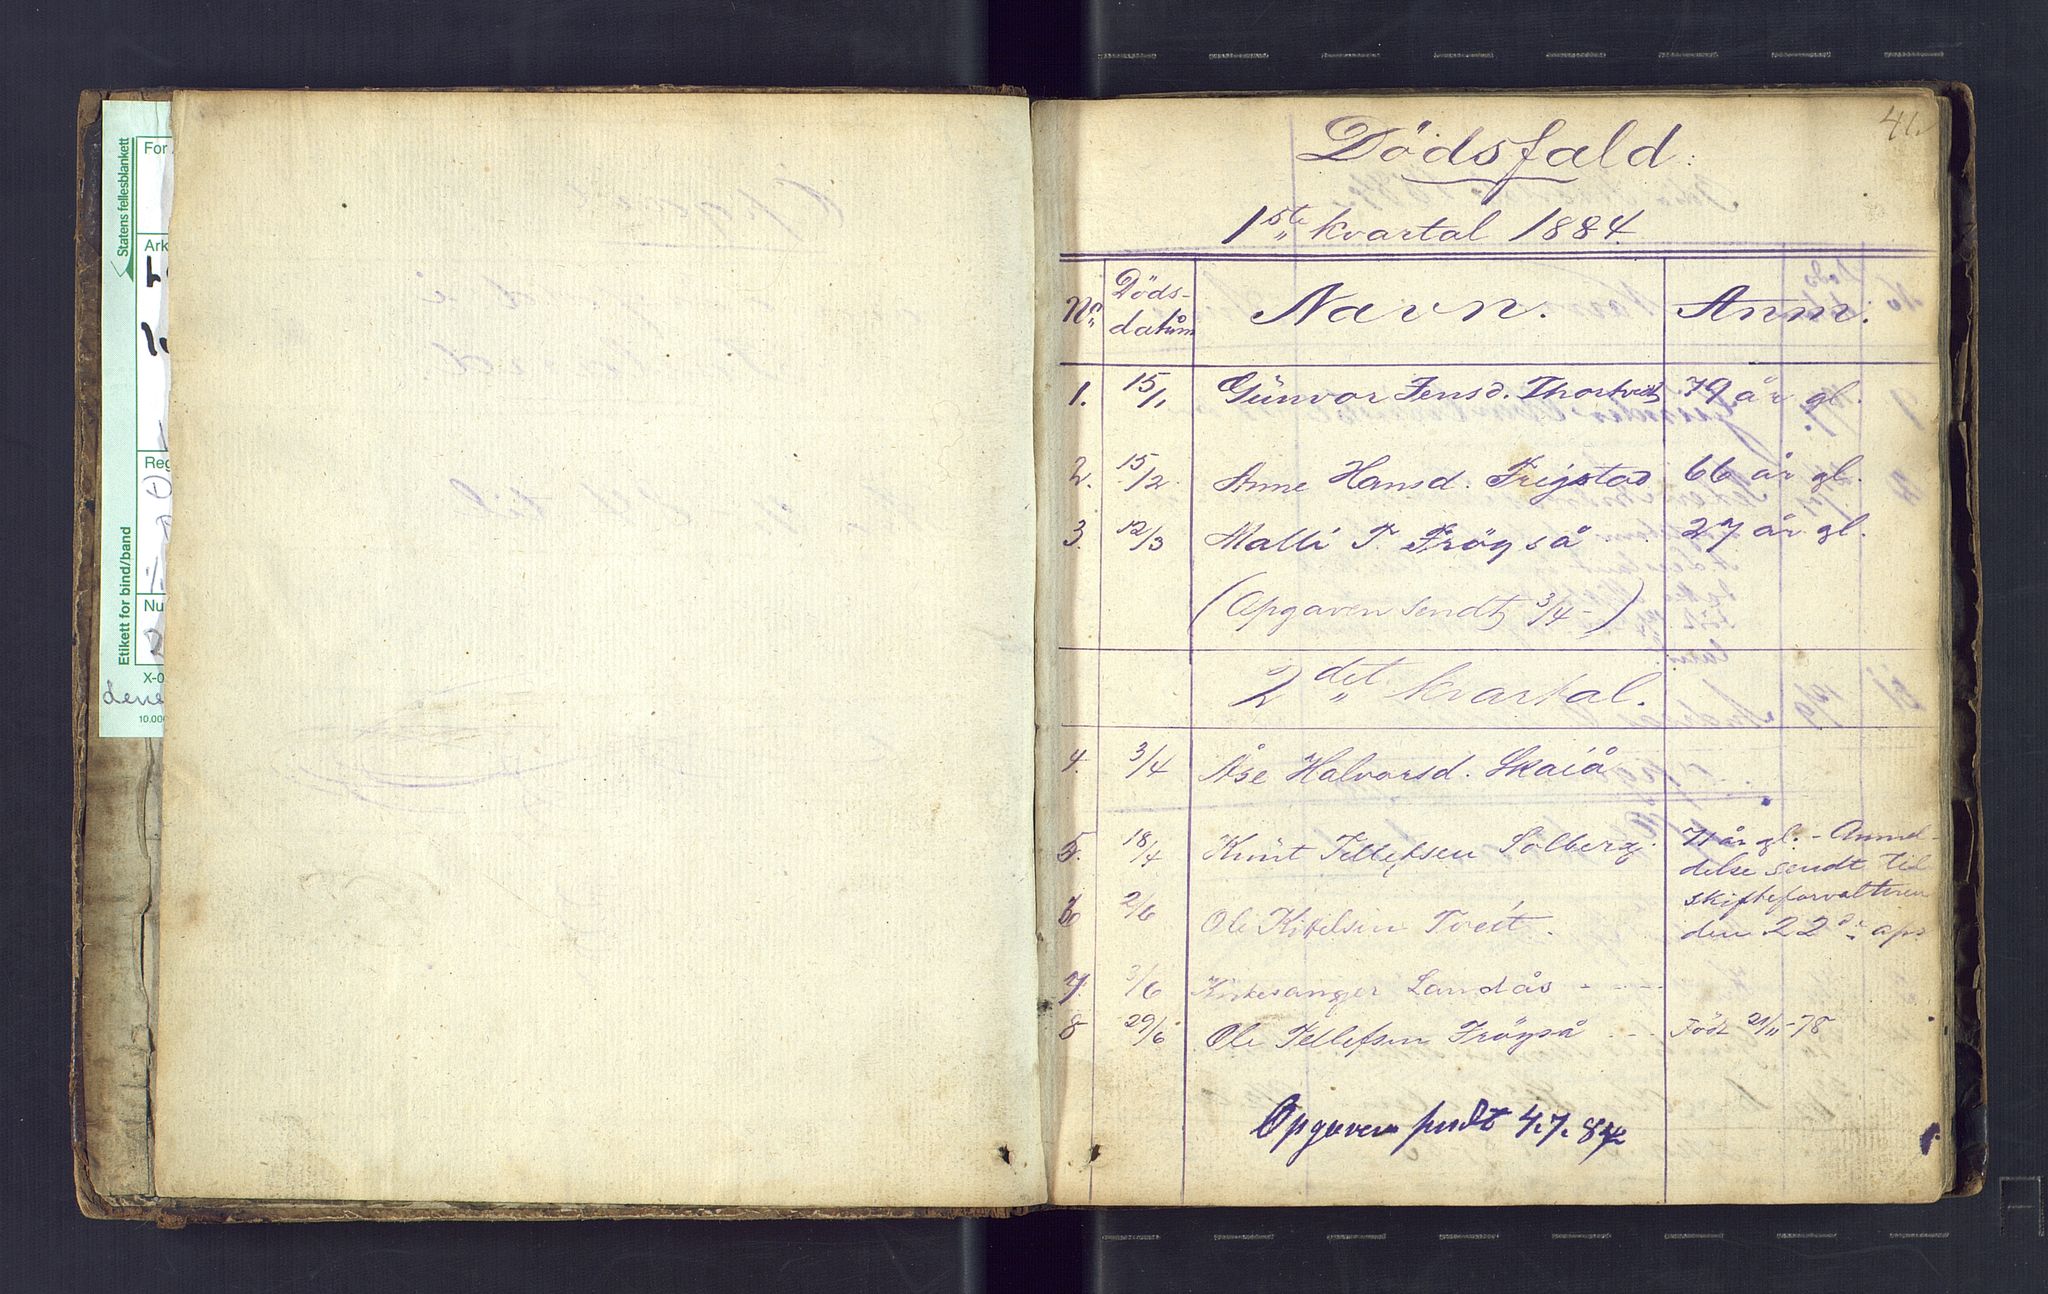 Statens fellesblankett
Etikett for bind/band
For
Ark
Reg
Nu
X-0
10.000
41.
Dödsfald.
1ste kvartal 1884.
No Dödsdatum Navn. Anm.
1. 15/1 Günvor Jensd. Thortvedt 79 år gl.
2. 15/2 Anne Hansd. Frigstad 66 år gl.
3. 12/3 Malli T. Fröyså 27 år gl.
(Opgaven sendt 3/4 -)
2det kvartal.
4. 3/4 Åse Halvorsd. Skaiå
5. 18/4 Knut Tellefsen Solberg. 71 år gl. - Anmel-
delse sendt til
skifteforvalteren
6 2/6 Ole Kittelsen Tveit. den 22de apr.
7. 3/6 Kirkesanger Landås - - -
8 29/6 Ole Tellefsen Fröyså - - Född 21/11 -78
Opgaven sendt 4.7.84